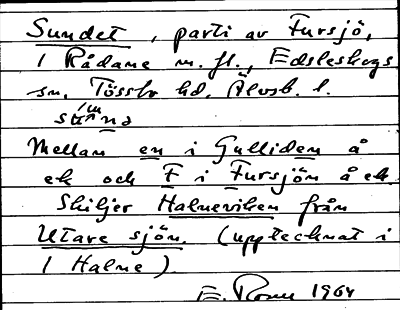 Sundet, parti av Fursjö,
1 Rådane m. fl., Edsleskogs
sn, Tössbo hd, Älvsb. l.
sunnd
Mellan en i Gulliden å
ek och F i Fursjön å ek.
Skiljer Halneviken från
Utare sjön. (upptecknat i
1 Halne).
E. Rosen 1964